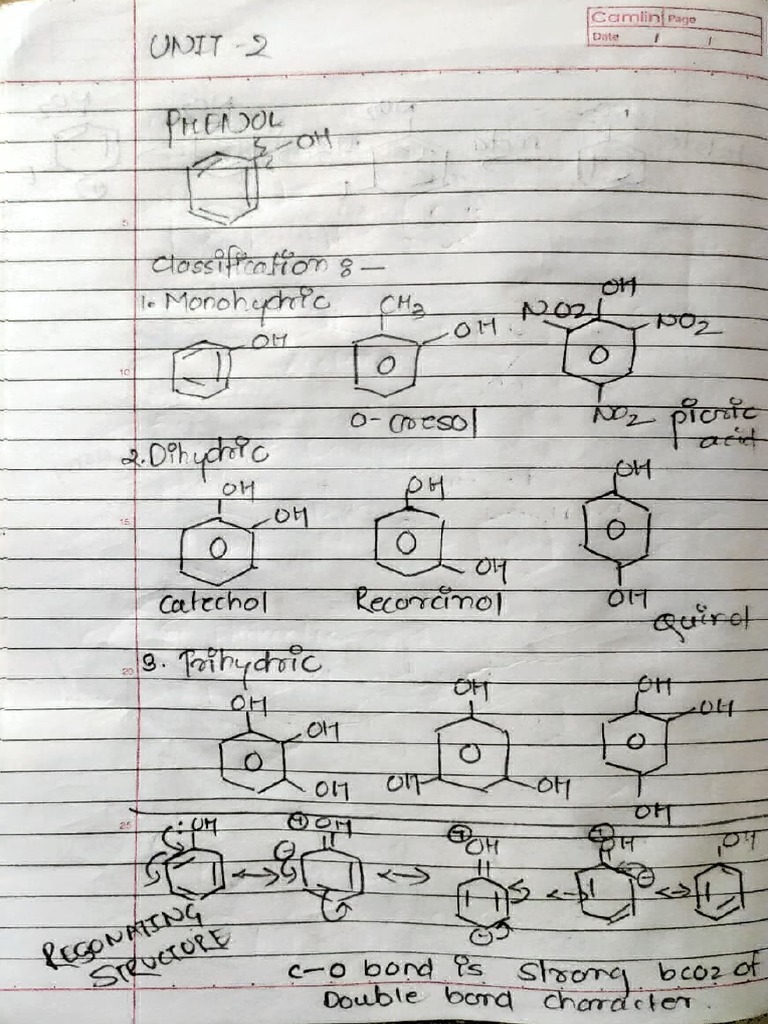 Camlin Page
Date / /
UNIT - 2
PHENOL
OH
5
Classification :-
1. Monohydric
OH
CH3
OH
OH
NO2
NO2
NO2
10
O-cresol
picric
acid
2. Dihydric
OH
OH
OH
OH
OH
OH
15
Catechol
Recorcinol
Quinol
20
3. Trihydric
OH
OH
OH
OH
OH
OH
OH
OH
OH
25
:OH
⊕OH
⊖
⊕OH
⊖
⊕OH
⊖
:OH
RESONATING
STRUCTURE
C-O bond is strong bcoz of
Double bond character.